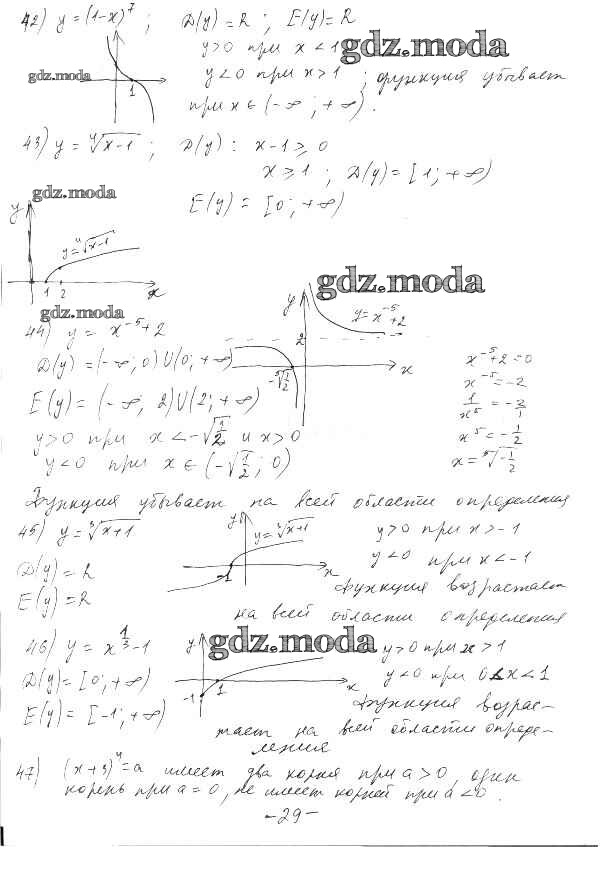 42) y = (1-x)^7 ; D(y) = R ; E(y) = R
y>0 при x<1
gdz.moda
y<0 при x>1 ; функция убывает
gdz.moda
1
при x ∈ (-∞ ; +∞).
43) y = ⁴√(x-1) ; D(y): x-1 ≥ 0
x ≥ 1 ; D(y) = [1; +∞)
gdz.moda
E(y) = [0; +∞)
y
y = ⁴√(x-1)
1 2 x
gdz.moda
gdz.moda
44) y = x^-5 + 2
y
y = x^-5 + 2
2
D(y) = (-∞; 0) U (0; +∞)
-⁵√(1/2)
x
x^-5 + 2 = 0
x^-5 = -2
E(y) = (-∞, 2) U (2; +∞)
1/x^5 = -2/1
y>0 при x < -√(1/2) и x>0
x^5 = -1/2
y<0 при x ∈ (-√(1/2); 0)
x = ⁵√(-1/2)
Функция убывает на всей области определения
45) y = ³√(x+1)
y
y = ³√(x+1)
-1
x
y>0 при x>-1
y<0 при x<-1
D(y) = R
E(y) = R
Функция возрастает
на всей области определения
46) y = x^(1/3) - 1
gdz.moda
y
-1
1
x
y>0 при x>1
D(y) = [0; +∞)
y<0 при 0<x<1
E(y) = [-1; +∞)
Функция возрас-
тает на всей области опреде-
ления
47) (x+3)^4 = a имеет два корня при a>0, один
корень при a = 0, не имеет корней при a<0.
-29-